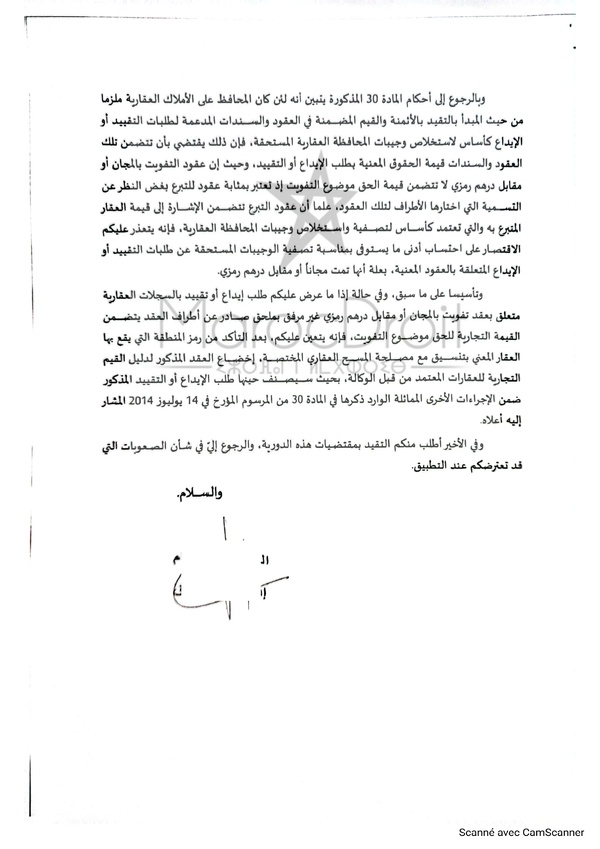 وبالرجوع إلى أحكام المادة 30 المذكورة يتبين أنه لئن كان المحافظ على الأملاك العقارية ملزما
من حيث المبدأ بالتقيد بالأثمنة والقيم المضمنة في العقود والسندات المدعمة لطلبات التقييد أو
الإيداع كأساس لاستخلاص وجيبات المحافظة العقارية المستحقة، فإن ذلك يقتضي بأن تتضمن تلك
العقود والسندات قيمة الحقوق المعنية بطلب الإيداع أو التقييد، وحيث إن عقود التفويت بالمجان أو
مقابل درهم رمزي لا تتضمن قيمة الحق موضوع التفويت إذ تعتبر بمثابة عقود للتبرع بغض النظر عن
التسمية التي اختارها الأطراف لتلك العقود، علما أن عقود التبرع تتضمن الإشارة إلى قيمة العقار
المتبرع به والتي تعتمد كأساس لتصفية واستخلاص وجيبات المحافظة العقارية، فإنه يتعذر عليكم
الاقتصار على احتساب أدنى ما يستوفى بمناسبة تصفية الوجيبات المستحقة عن طلبات التقييد أو
الإيداع المتعلقة بالعقود المعنية، بعلة أنها تمت مجاناً أو مقابل درهم رمزي.
وتأسيسا على ما سبق، وفي حالة إذا ما عرض عليكم طلب إيداع أو تقييد بالسجلات العقارية
متعلق بعقد تفويت بالمجان أو مقابل درهم رمزي غير مرفق بملحق صادر عن أطراف العقد يتضمن
القيمة التجارية للحق موضوع التفويت، فإنه يتعين عليكم، بعد التأكد من رمز المنطقة التي يقع بها
العقار المعني بتنسيق مع مصلحة المسح العقاري المختصة، إخضاع العقد المذكور لدليل القيم
التجارية للعقارات المعتمد من قبل الوكالة، بحيث سيصنف حينها طلب الإيداع أو التقييد المذكور
ضمن الإجراءات الأخرى المماثلة الوارد ذكرها في المادة 30 من المرسوم المؤرخ في 14 يوليوز 2014 المشار
إليه أعلاه.
وفي الأخير أطلب منكم التقيد بمقتضيات هذه الدورية، والرجوع إليّ في شأن الصعوبات التي
قد تعترضكم عند التطبيق.
والسلام.
MarocDroit
Scanné avec CamScanner